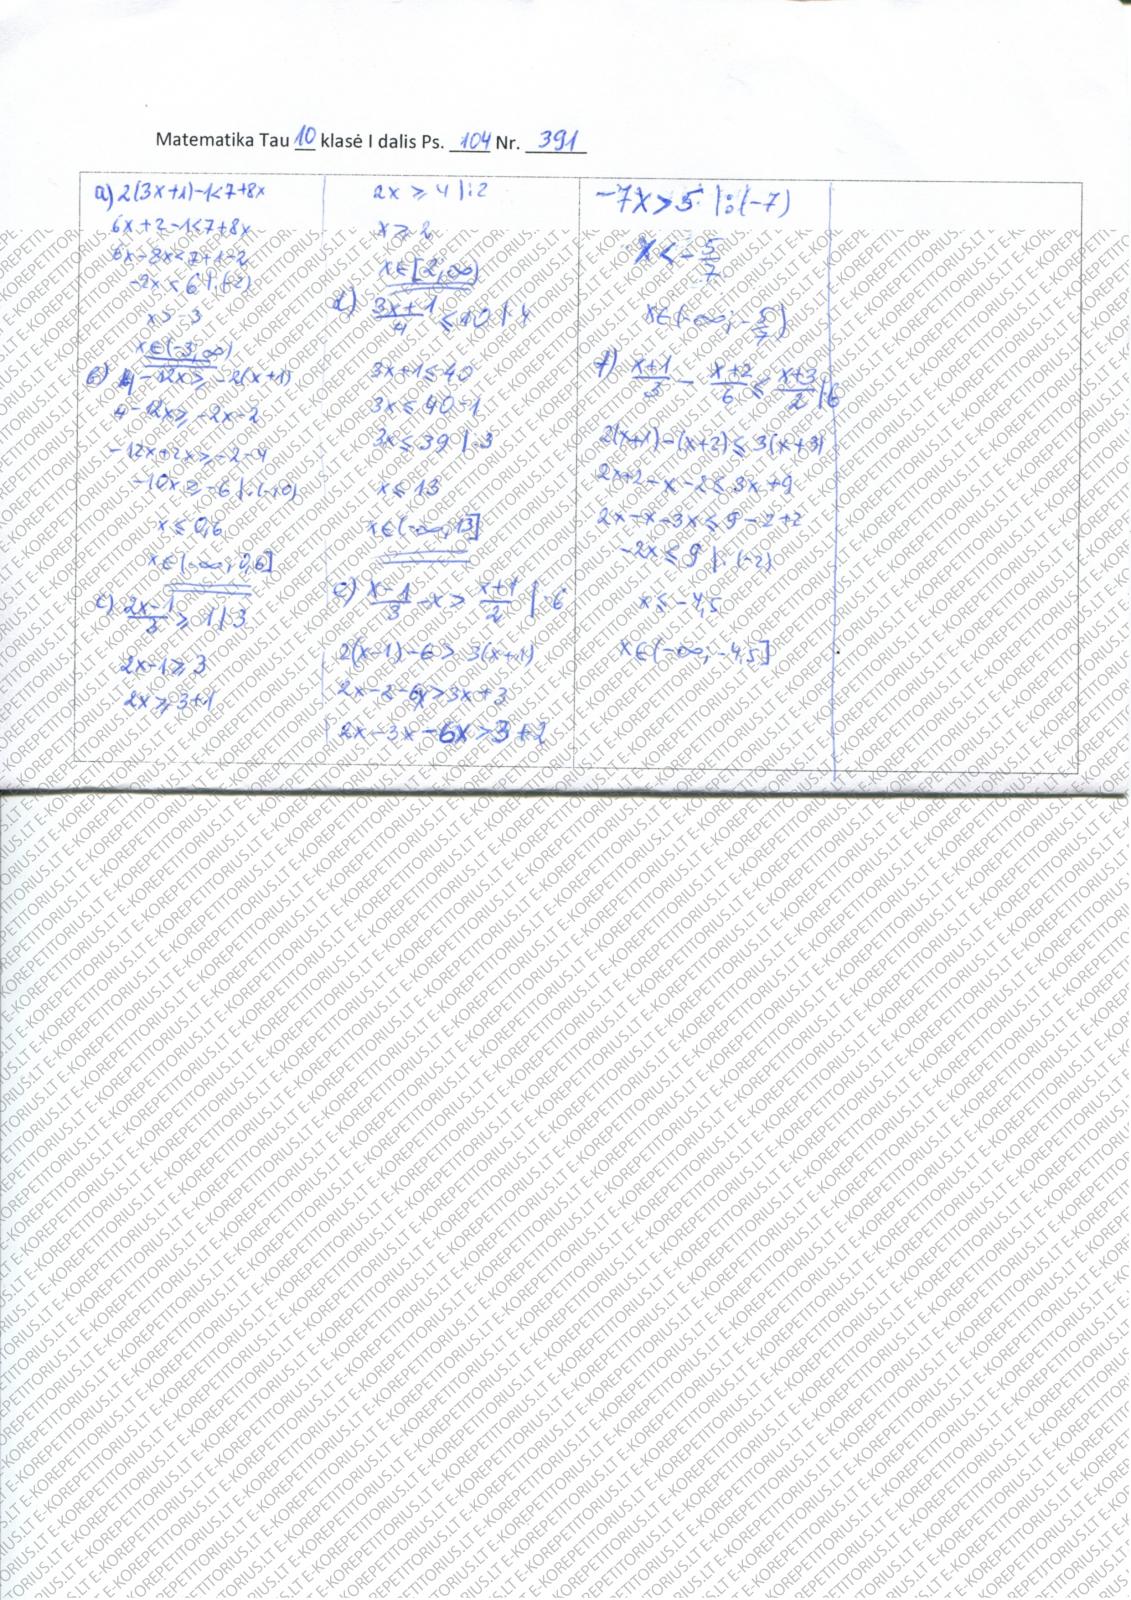 Matematika Tau 10 klasė I dalis Ps. 104 Nr. 391
a) 2(3x+1)-1<7+8x
6x+2-1<7+8x
6x-8x<7+1-2
-2x<6 |:(-2)
x>-3
x∈(-3;∞)
b) 4-12x≥-2(x+1)
4-12x≥-2x-2
-12x+2x≥-2-4
-10x≥-6 |:(-10)
x≤0,6
x∈(-∞;0,6]
c) (2x-1)/3≥1 |·3
2x-1≥3
2x≥3+1
2x≥4 |:2
x≥2
x∈[2;∞)
d) (3x+1)/4≤10 |·4
3x+1≤40
3x≤40-1
3x≤39 |:3
x≤13
x∈(-∞;13]
e) (x-1)/3-x>(x+1)/2 |·6
2(x-1)-6>3(x+1)
2x-2-6x>3x+3
2x-3x-6x>3+2
-7x>5 |:(-7)
x<-5/7
x∈(-∞;-5/7)
f) (x+1)/3-(x+2)/6≤(x+3)/2 |·6
2(x+1)-(x+2)≤3(x+3)
2x+2-x-2≤3x+9
2x-x-3x≤9-2+2
-2x≤9 |:(-2)
x≤-4,5
x∈(-∞;-4,5]
E-KOREPETITORIUS.LT